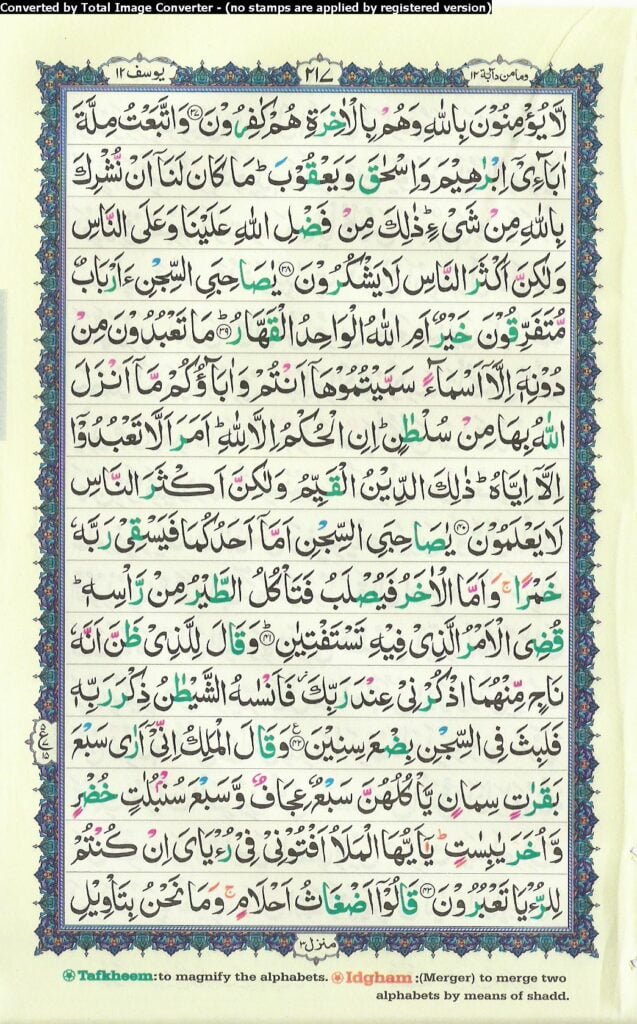 Converted by Total Image Converter - (no stamps are applied by registered version)
يوسف ١٢
٢١٧
ومامن دآبة ١٢
لَا يُؤْمِنُوْنَ بِاللّٰهِ وَهُمْ بِالْاٰخِرَةِ هُمْ كٰفِرُوْنَ ﴿۳۷﴾ وَاتَّبَعْتُ مِلَّةَ
اٰبَآءِیْۤ اِبْرٰهِيْمَ وَاِسْحٰقَ وَيَعْقُوْبَ ؕ مَا كَانَ لَنَاۤ اَنْ نُّشْرِكَ
بِاللّٰهِ مِنْ شَیْءٍ ؕ ذٰلِكَ مِنْ فَضْلِ اللّٰهِ عَلَيْنَا وَعَلَى النَّاسِ
وَلٰكِنَّ اَكْثَرَ النَّاسِ لَا يَشْكُرُوْنَ ﴿۳۸﴾ يٰصَاحِبَیِ السِّجْنِ ءَاَرْبَابٌ
مُّتَفَرِّقُوْنَ خَيْرٌ اَمِ اللّٰهُ الْوَاحِدُ الْقَهَّارُ ؕ ﴿۳۹﴾ مَا تَعْبُدُوْنَ مِنْ
دُوْنِهٖۤ اِلَّاۤ اَسْمَآءً سَمَّيْتُمُوْهَاۤ اَنْتُمْ وَاٰبَآؤُكُمْ مَّاۤ اَنْزَلَ
اللّٰهُ بِهَا مِنْ سُلْطٰنٍ ؕ اِنِ الْحُكْمُ اِلَّا لِلّٰهِ ؕ اَمَرَ اَلَّا تَعْبُدُوْۤا
اِلَّاۤ اِيَّاهُ ؕ ذٰلِكَ الدِّيْنُ الْقَيِّمُ وَلٰكِنَّ اَكْثَرَ النَّاسِ
لَا يَعْلَمُوْنَ ﴿۴۰﴾ يٰصَاحِبَیِ السِّجْنِ اَمَّاۤ اَحَدُكُمَا فَيَسْقِیْ رَبَّهٗ
خَمْرًا ۚ وَاَمَّا الْاٰخَرُ فَيُصْلَبُ فَتَاْكُلُ الطَّيْرُ مِنْ رَّاْسِهٖ ؕ
قُضِیَ الْاَمْرُ الَّذِیْ فِيْهِ تَسْتَفْتِيٰنِ ؕ ﴿۴۱﴾ وَقَالَ لِلَّذِیْ ظَنَّ اَنَّهٗ
نَاجٍ مِّنْهُمَا اذْكُرْنِیْ عِنْدَ رَبِّكَ ؗ فَاَنْسٰىهُ الشَّيْطٰنُ ذِكْرَ رَبِّهٖ
فَلَبِثَ فِی السِّجْنِ بِضْعَ سِنِيْنَ ﴿۴۲﴾ ع وَقَالَ الْمَلِكُ اِنِّیْۤ اَرٰی سَبْعَ
بَقَرٰتٍ سِمَانٍ يَّاْكُلُهُنَّ سَبْعٌ عِجَافٌ وَّسَبْعَ سُنْۢبُلٰتٍ خُضْرٍ
وَّاُخَرَ يٰبِسٰتٍ ؕ يٰۤاَيُّهَا الْمَلَاُ اَفْتُوْنِیْ فِیْ رُءْيَایَ اِنْ كُنْتُمْ
لِلرُّءْيَا تَعْبُرُوْنَ ﴿۴۳﴾ قَالُوْۤا اَضْغَاثُ اَحْلَامٍ ۚ وَمَا نَحْنُ بِتَاْوِيْلِ
منزل ٣
Tafkheem: to magnify the alphabets. Idgham :(Merger) to merge two
alphabets by means of shadd.